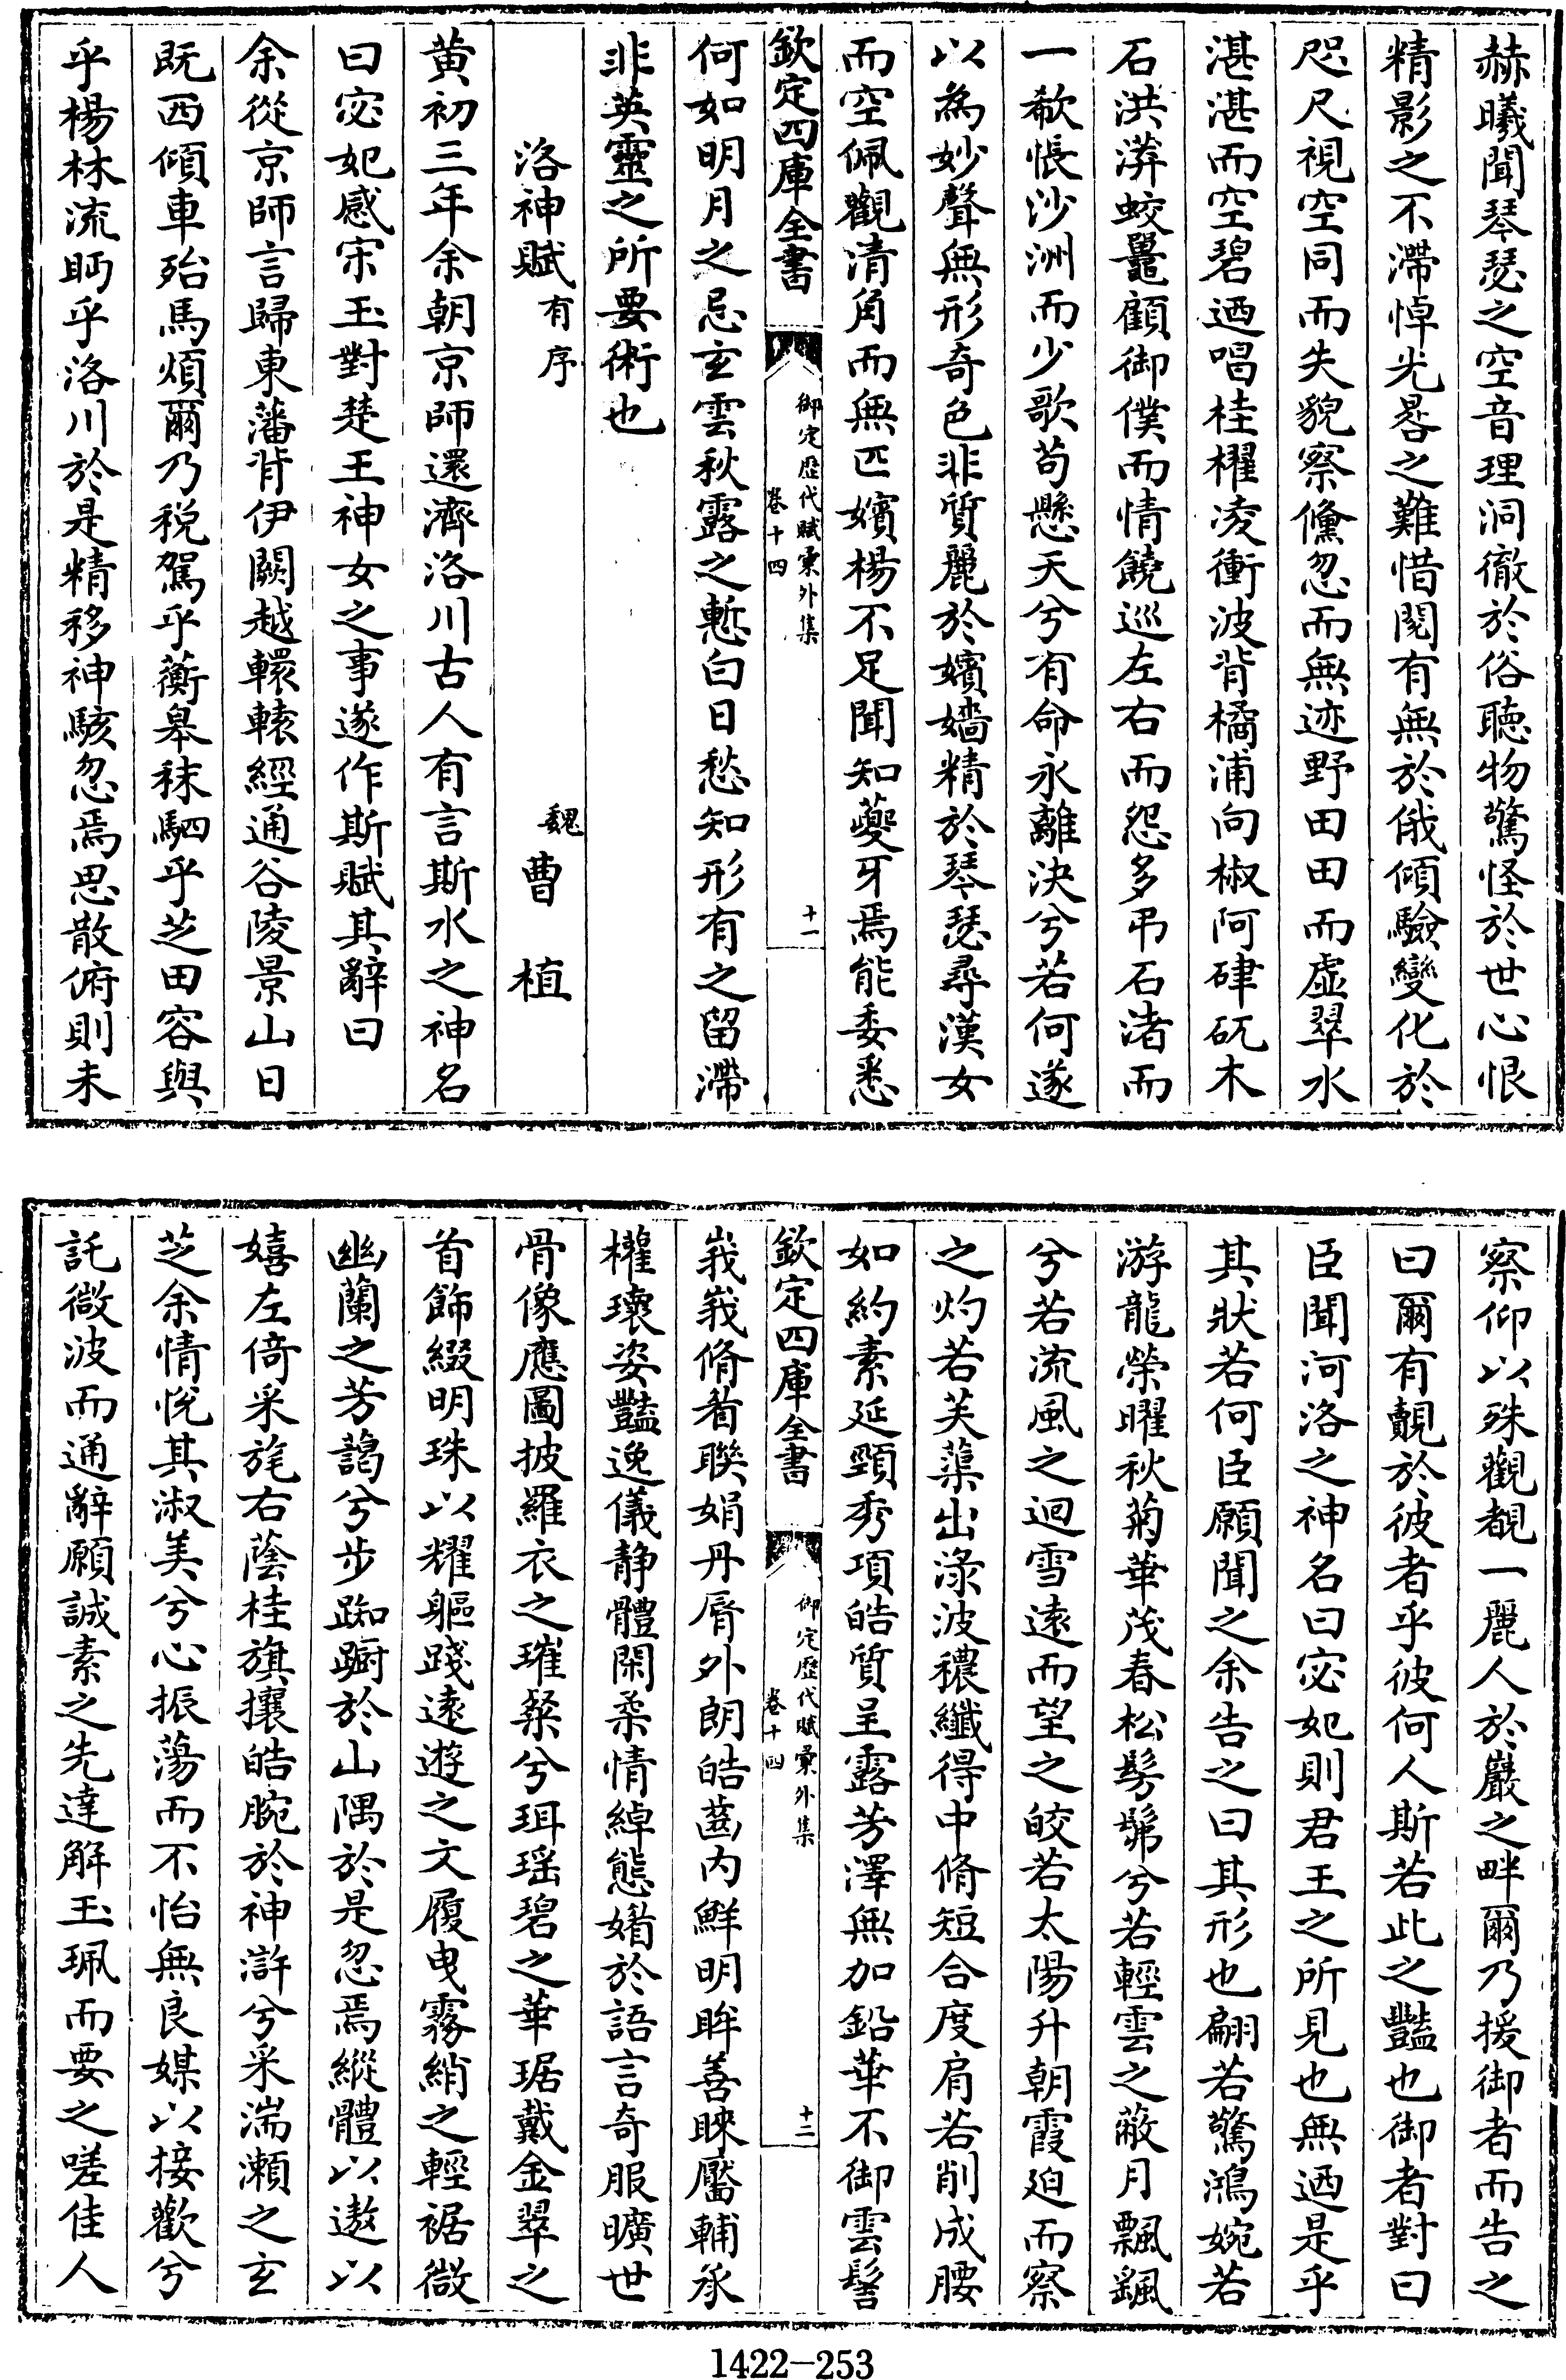 赫曦聞琴瑟之空音理洞徹於俗聴物驚怪於世心恨
精影之不滯悼光晷之難惜閱有無於俄傾驗變化於
咫尺視空同而失貌察儵忽而無迹野田田而虛翠水
湛湛而空碧迺唱桂櫂凌衝波背橘浦向椒阿硉矹木
石洪漭蛟鼉顧御僕而情饒巡左右而怨多弔石渚而
一欷悵沙洲而少歌苟懸天兮有命永離決兮若何遂
以為妙聲無形奇色非質麗於嬪嬙精於琴瑟尋漢女
而空佩觀清角而無匹嬪楊不足聞知夔牙焉能委悉
欽定四庫全書
御定歷代賦彙外集
卷十四
十一
何如明月之忌玄雲秋露之慙白日愁知形有之留滯
非英靈之所要術也
洛神賦有序
魏曹植
黄初三年余朝京師還濟洛川古人有言斯水之神名
曰宓妃感宋玉對楚王神女之事遂作斯賦其辭曰
余從京師言歸東藩背伊闕越轘轅經通谷陵景山日
既西傾車殆馬煩爾乃税駕乎蘅臯秣駟乎芝田容與
乎楊林流眄乎洛川於是精移神駭忽焉思散俯則未
察仰以殊觀覩一麗人於巖之畔爾乃援御者而告之
曰爾有覿於彼者乎彼何人斯若此之豔也御者對曰
臣聞河洛之神名曰宓妃則君王之所見也無迺是乎
其狀若何臣願聞之余告之曰其形也翩若驚鴻婉若
游龍榮曜秋菊華茂春松髣髴兮若輕雲之蔽月飄颻
兮若流風之迴雪遠而望之皎若太陽升朝霞迫而察
之灼若芙蕖出淥波穠纖得中脩短合度肩若削成腰
如約素延頸秀項皓質呈露芳澤無加鉛華不御雲髻
欽定四庫全書
御定歷代賦彙外集
卷十四
十二
峩峩脩眉聯娟丹脣外朗皓齒内鮮明眸善睞靨輔承
權瓌姿豔逸儀静體閑柔情綽態媚於語言奇服曠世
骨像應圖披羅衣之璀粲兮珥瑶碧之華琚戴金翠之
首飾綴明珠以耀軀踐遠遊之文履曳霧綃之輕裾微
幽蘭之芳藹兮步踟蹰於山隅於是忽焉縱體以遨以
嬉左倚采旄右蔭桂旗攘皓腕於神滸兮采湍瀨之玄
芝余情悦其淑美兮心振蕩而不怡無良媒以接歡兮
託微波而通辭願誠素之先達解玉珮而要之嗟佳人
1422-253